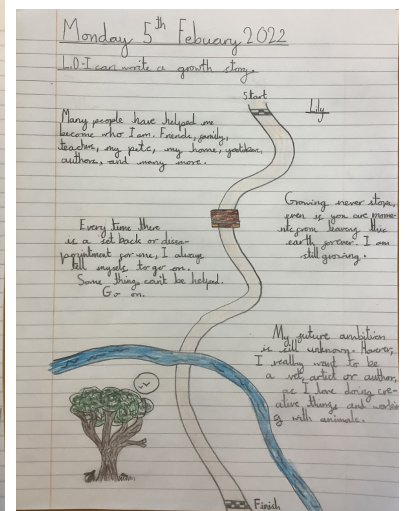 Monday 5th Febuary 2022
L.O-I can write a growth story.
Start
Lily
Many people have helped me
become who I am. Friends, family,
teachers, my pets, my home, youtubers,
authors, and many more.
Growing never stops,
even if you are mome-
nts from leaving this
earth forever. I am
still growing.
Every time there
is a set back or disa-
pointment for me, I always
tell myself to go on.
Some thing can't be helped.
Go on.
My future ambition
is still unknown. However,
I really want to be
a vet, artist or author,
as I love doing cre-
ative things and workin
g with animals.
Finish